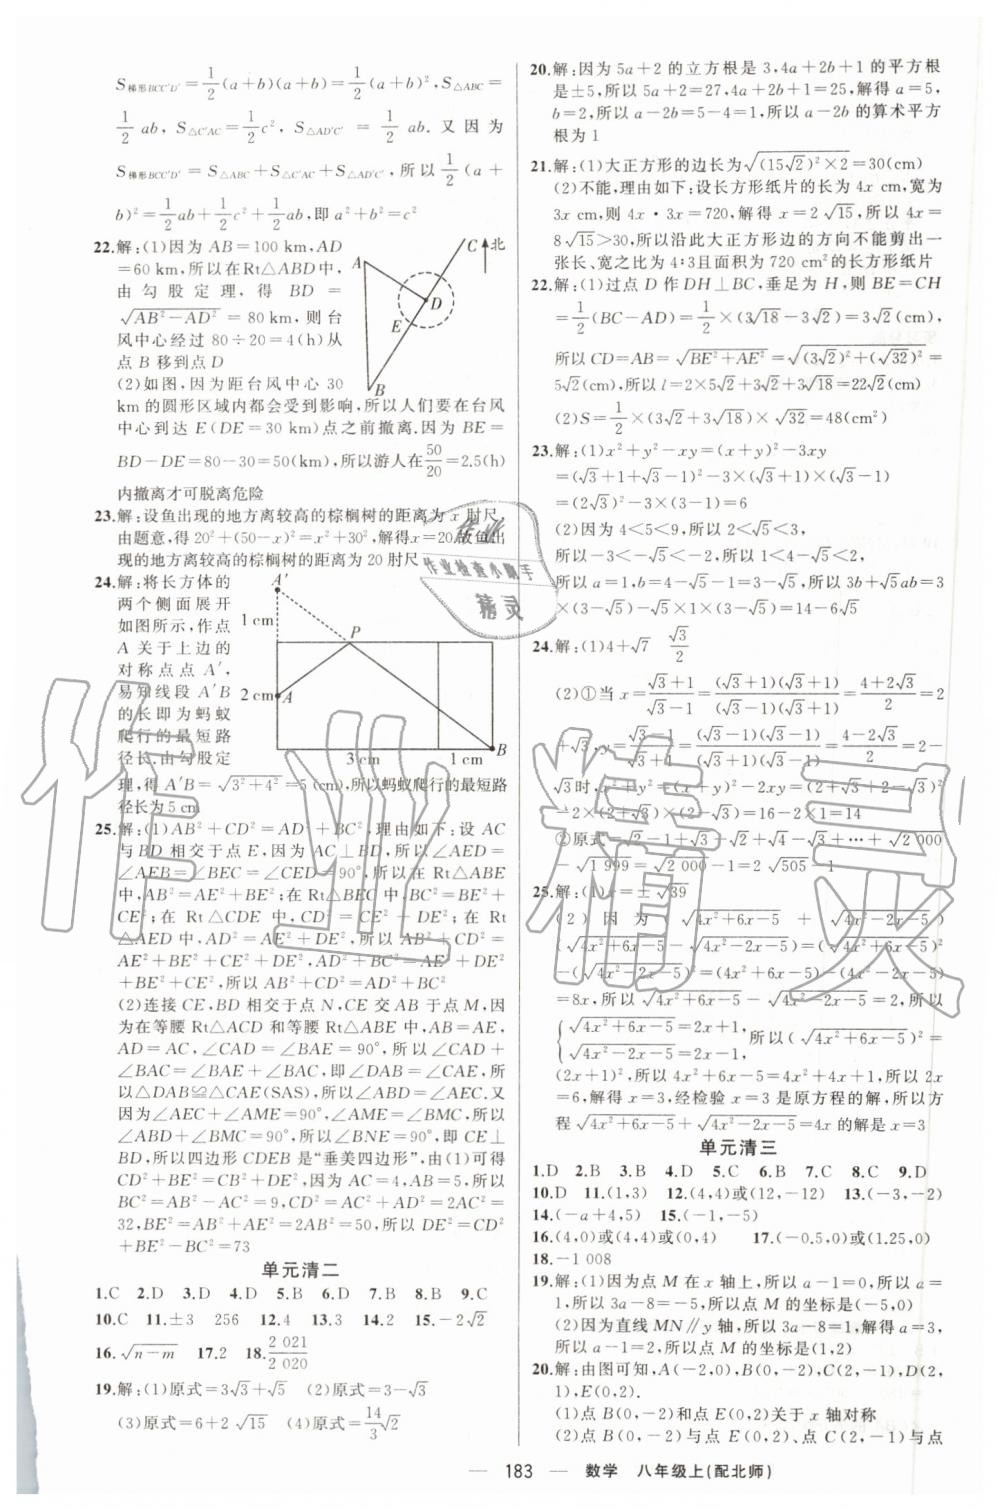 S梯形BCC′D′=1/2(a+b)(a+b)=1/2(a+b)²,S△ABC=
1/2 ab, S△C′AC=1/2c², S△AD′C′=1/2 ab. 又因为
S梯形BCC′D′=S△ABC+S△C′AC+S△AD′C′,所以1/2(a+
b)²=1/2ab+1/2c²+1/2ab,即a²+b²=c²
22.解:(1)因为AB=100 km,AD
=60 km,所以在Rt△ABD中,
由勾股定理,得BD=
√(AB²-AD²)=80 km,则台
风中心经过80÷20=4(h)从
点B移到点D
(2)如图,因为距台风中心30
km的圆形区域内都会受到影响,所以人们要在台风
中心到达E(DE=30 km)点之前撤离.因为BE=
BD-DE=80-30=50(km),所以游人在50/20=2.5(h)
内撤离才可脱离危险
A
B
C
D
E
北
23.解:设鱼出现的地方离较高的棕榈树的距离为x肘尺,
由题意,得20²+(50-x)²=x²+30²,解得x=20,故鱼出
现的地方离较高的棕榈树的距离为20肘尺
24.解:将长方体的
两个侧面展开
如图所示,作点
A关于上边的
对称点点A′,
易知线段A′B
的长即为蚂蚁
爬行的最短路
径长,由勾股定
理,得A′B=√(3²+4²)=5(cm),所以蚂蚁爬行的最短路
径长为5 cm
A′
1 cm
P
2 cm
A
3 cm
1 cm
B
25.解:(1)AB²+CD²=AD²+BC²,理由如下:设AC
与BD相交于点E,因为AC⊥BD,所以∠AED=
∠AEB=∠BEC=∠CED=90°,所以在Rt△ABE
中,AB²=AE²+BE²;在Rt△BEC中BC²=BE²+
CE²;在Rt△CDE中,CD²=CE²+DE²;在Rt
△AED中,AD²=AE²+DE²,所以AB²+CD²=
AE²+BE²+CE²+DE²,AD²+BC²=AE²+DE²
+BE²+CE²,所以AB²+CD²=AD²+BC²
(2)连接CE,BD相交于点N,CE交AB于点M,因
为在等腰Rt△ACD和等腰Rt△ABE中,AB=AE,
AD=AC,∠CAD=∠BAE=90°,所以∠CAD+
∠BAC=∠BAE+∠BAC,即∠DAB=∠CAE,
所以△DAB≌△CAE(SAS),所以∠ABD=∠AEC.又
因为∠AEC+∠AME=90°,∠AME=∠BMC,所以
∠ABD+∠BMC=90°,所以∠BNE=90°,即CE⊥
BD,所以四边形CDEB是“垂美四边形”,由(1)可得
CD²+BE²=CB²+DE²,因为AC=4,AB=5,所以
BC²=AB²-AC²=9,CD²=AC²+AD²=2AC²=
32,BE²=AB²+AE²=2AB²=50,所以DE²=CD²
+BE²-BC²=73
单元清二
1.C 2.D 3.D 4.D 5.B 6.D 7.D 8.B 9.C
10.C 11.±3 256 12.4 13.3 14.2 15.-2√2
16.√(n-m) 17.2 18.2 021/2 020
19.解:(1)原式=3√3+√5 (2)原式=3-√3
(3)原式=6+2√15 (4)原式=14/3√2
20.解:因为5a+2的立方根是3,4a+2b+1的平方根
是±5,所以5a+2=27,4a+2b+1=25,解得a=5,
b=2,所以a-2b=5-4=1,所以a-2b的算术平方
根为1
21.解:(1)大正方形的边长为√((15√2)²×2)=30(cm)
(2)不能,理由如下:设长方形纸片的长为4x cm,宽为
3x cm,则4x·3x=720,解得x=2√15,所以4x=
8√15>30,所以沿此大正方形边的方向不能剪出一
张长、宽之比为4∶3且面积为720 cm²的长方形纸片
22.解:(1)过点D作DH⊥BC,垂足为H,则BE=CH
=1/2(BC-AD)=1/2×(3√18-3√2)=3√2(cm),
所以CD=AB=√(BE²+AE²)=√((3√2)²+(√32)²)=
5√2(cm),所以l=2×5√2+3√2+3√18=22√2(cm)
(2)S=1/2×(3√2+3√18)×√32=48(cm²)
23.解:(1)x²+y²-xy=(x+y)²-3xy
=(√3+1+√3-1)²-3×(√3+1)×(√3-1)
=(2√3)²-3×(3-1)=6
(2)因为4<5<9,所以2<√5<3,
所以-3<-√5<-2,所以1<4-√5<2,
所以a=1,b=4-√5-1=3-√5,所以3b+√5ab=3
×(3-√5)+√5×1×(3-√5)=14-6√5
24.解:(1)4+√7 √3/2
(2)①当x=(√3+1)/(√3-1)=(√3+1)(√3+1)/(√3-1)(√3+1)=(4+2√3)/2=2
+√3,y=(√3-1)/(√3+1)=(√3-1)(√3-1)/(√3+1)(√3-1)=(4-2√3)/2=2-
√3时,x²+y²=(x+y)²-2xy=(2+√3+2-√3)²
-2×(2+√3)×(2-√3)=16-2×1=14
②原式=√2-1+√3-√2+√4-√3+…+√2 000
-√1 999=√2 000-1=20√5-1
25.解:(1)x=±√39
(2)因为(√(4x²+6x-5)+√(4x²-2x-5))
(√(4x²+6x-5)-√(4x²-2x-5))=(√(4x²+6x-5))²
-(√(4x²-2x-5))²=(4x²+6x-5)-(4x²-2x-5)
=8x,所以√(4x²+6x-5)-√(4x²-2x-5)=2,所以
{√(4x²+6x-5)=2x+1, √(4x²-2x-5)=2x-1, 所以(√(4x²+6x-5))²=
(2x+1)²,所以4x²+6x-5=4x²+4x+1,所以2x
=6,解得x=3,经检验x=3是原方程的解,所以方
程√(4x²+6x-5)+√(4x²-2x-5)=4x的解是x=3
单元清三
1.D 2.B 3.B 4.D 5.C 6.B 7.C 8.C 9.D
10.D 11.(1,3) 12.(4,4)或(12,-12) 13.(-3,-2)
14.(-a+4,5) 15.(-1,-5)
16.(4,0)或(4,4)或(0,4) 17.(-0.5,0)或(1.25,0)
18.-1 008
19.解:(1)因为点M在x轴上,所以a-1=0,所以a=
1,所以3a-8=-5,所以点M的坐标是(-5,0)
(2)因为直线MN∥y轴,所以3a-8=1,解得a=3,
所以a-1=2,所以点M的坐标是(1,2)
20.解:由图可知,A(-2,0),B(0,-2),C(2,-1),D(2,
1),E(0,2).
(1)点B(0,-2)和点E(0,2)关于x轴对称
(2)点B(0,-2)与点E(0,2),点C(2,-1)与点
— 183 — 数学 八年级上(配北师)
作业精灵
作业
作业检查小助手
精灵